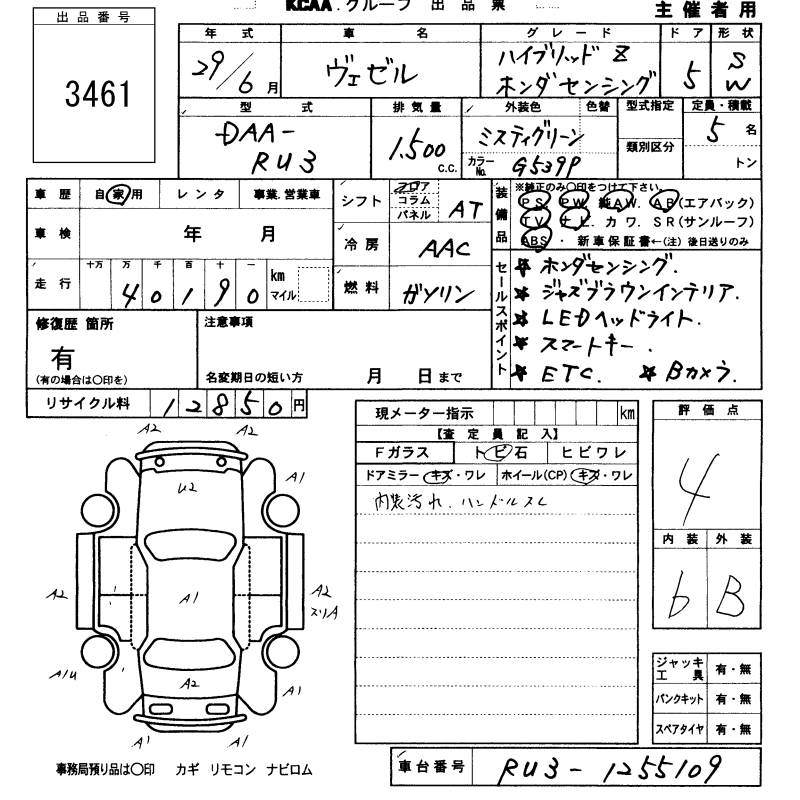 KCAA.グループ 出品票
主催者用
出品番号
3461
年式 車名 グレード ドア 形状
29/6月 ヴェゼル ハイブリッド Z ホンダセンシング 5 SW
型式 排気量 外装色 色替 型式指定 定員・積載
DAA-RU3 1.500 C.C. ミスティグリーン 類別区分 5名
カラーNo. G539P トン
車歴 自家用 レンタ 事業.営業車
シフト フロア コラム パネル AT
車検 年 月
冷房 AAC
走行 十万 万 千 百 十 一
40190 km マイル
燃料 ガソリン
装備品 ※純正のみ○印をつけて下さい。
PS PW 純AW. AB(エアバック)
TV ナビ. カワ. SR(サンルーフ)
ABS ・ 新車保証書←(注)後日送りのみ
セールスポイント
★ ホンダセンシング.
★ ジャズブラウンインテリア.
★ LEDヘッドライト.
★ スマートキー.
★ ETC. ★ Bカメラ.
修復歴 箇所
有
(有の場合は○印を)
注意事項
名変期日の短い方 月 日まで
リサイクル料 12850円
現メーター指示 km
【査定員記入】
Fガラス トビ石 ヒビワレ
ドアミラー キズ・ワレ ホイール(CP) キズ・ワレ
内装汚れ. ハンドルスレ
評価点
4
内装 外装
b B
A2 A2
U2 A1
A2 A1 A2
スリA
A1U A2 A1
A1 A1
ジャッキ工具 有・無
パンクキット 有・無
スペアタイヤ 有・無
事務局預り品は○印 カギ リモコン ナビロム
車台番号 RU3-1255109